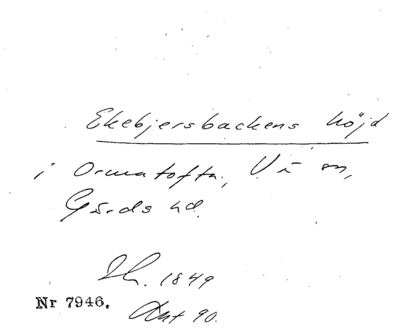 Ekebjersbackens höjd
i Ormatofta, V i on,
Gärds hd.
Sk. 1849
Nr 7946.
Ant 90.